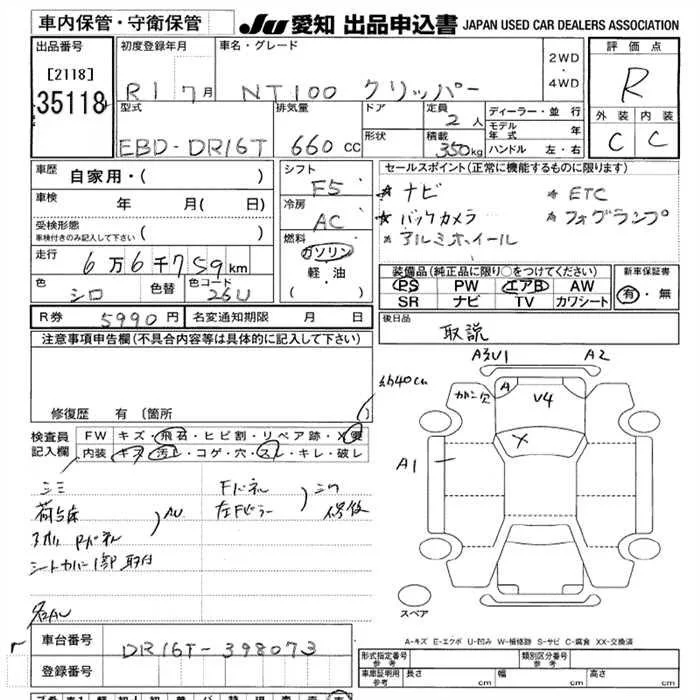 車内保管・守衛保管
JU 愛知 出品申込書 JAPAN USED CAR DEALERS ASSOCIATION
出品番号
[2118]
35118
初度登録年月
R1 7月
車名・グレード
NT100 クリッパー
2WD
・
4WD
評価点
R
外装 内装
C C
型式
EBD-DR16T
排気量
660 CC
ドア
形状
定員
2人
積載
350kg
ディーラー・並行
モデル年式 年
ハンドル 左・右
車歴
自家用・( )
車検
年 月( 日)
受検形態
車検付きのみ記入して下さい
走行
6万6千759km
色
シロ
色替
色コード
26U
シフト
F5
冷房
AC
燃料
ガソリン
軽・油
( )
セールスポイント(正常に機能するものに限ります)
ナビ
ETC
バックカメラ
フォグランプ
アルミホイール
装備品(純正品に限り○をつけてください)
PS PW エアB AW
SR ナビ TV カワシート
新車保証書
有・無
R券 5990円
名変通知期限 月 日
後日品
取説
注意事項申告欄(不具合内容等は具体的に記入して下さい)
修復歴 有(箇所 )
検査員記入欄
FW キズ・飛石・ヒビ割・リペア跡・X要
内装 キズ・汚レ・コゲ・穴・スレ・キレ・破レ
Fパネル
シートカバー1部取付
A3U1
A2
約40cm
A
V4
X
A1
スペア
A-キズ E-エクボ U-凹み W-補修跡 S-サビ C-腐食 XX-交換済
車台番号
DR16T-398073
登録番号
形式指定番号
参考
類別区分番号
参考
車庫証明用
参考
長さ cm 幅 cm 高さ cm